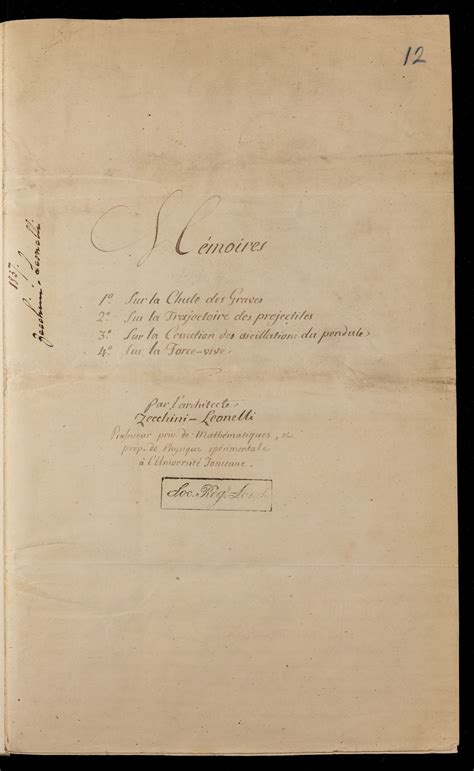 12
1837.
Zecchini-Leonelli
Mémoires
1º Sur la Chute des Graves
2º Sur la Trajectoire des projectiles
3º Sur la des oscillations du pendule
4º Sur la Force-vive
Par l'architecte
Zecchini-Leonelli
Professeur priv. de Mathématiques, et
prep. de Physique
à l'Université Ionienne.
Soc. Reg. Lond